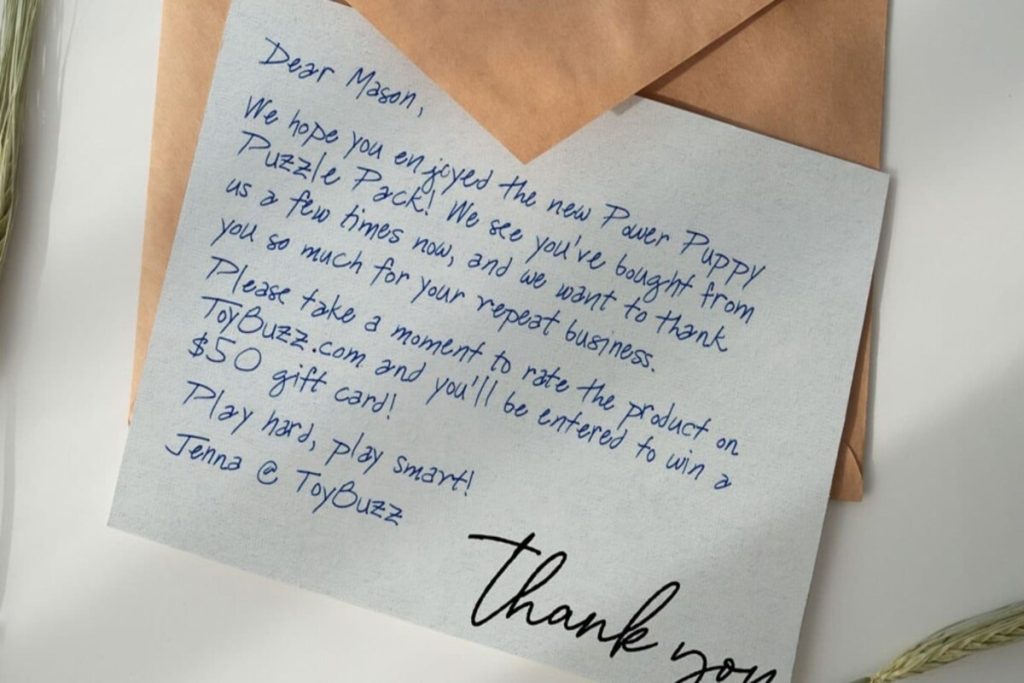 Dear Mason,
We hope you enjoyed the new Power Puppy
Puzzle Pack! We see you've bought from
us a few times now, and we want to thank
you so much for your repeat business.
Please take a moment to rate the product on
ToyBuzz.com and you'll be entered to win a
$50 gift card!
Play hard, play smart!
Jenna @ ToyBuzz
thank you